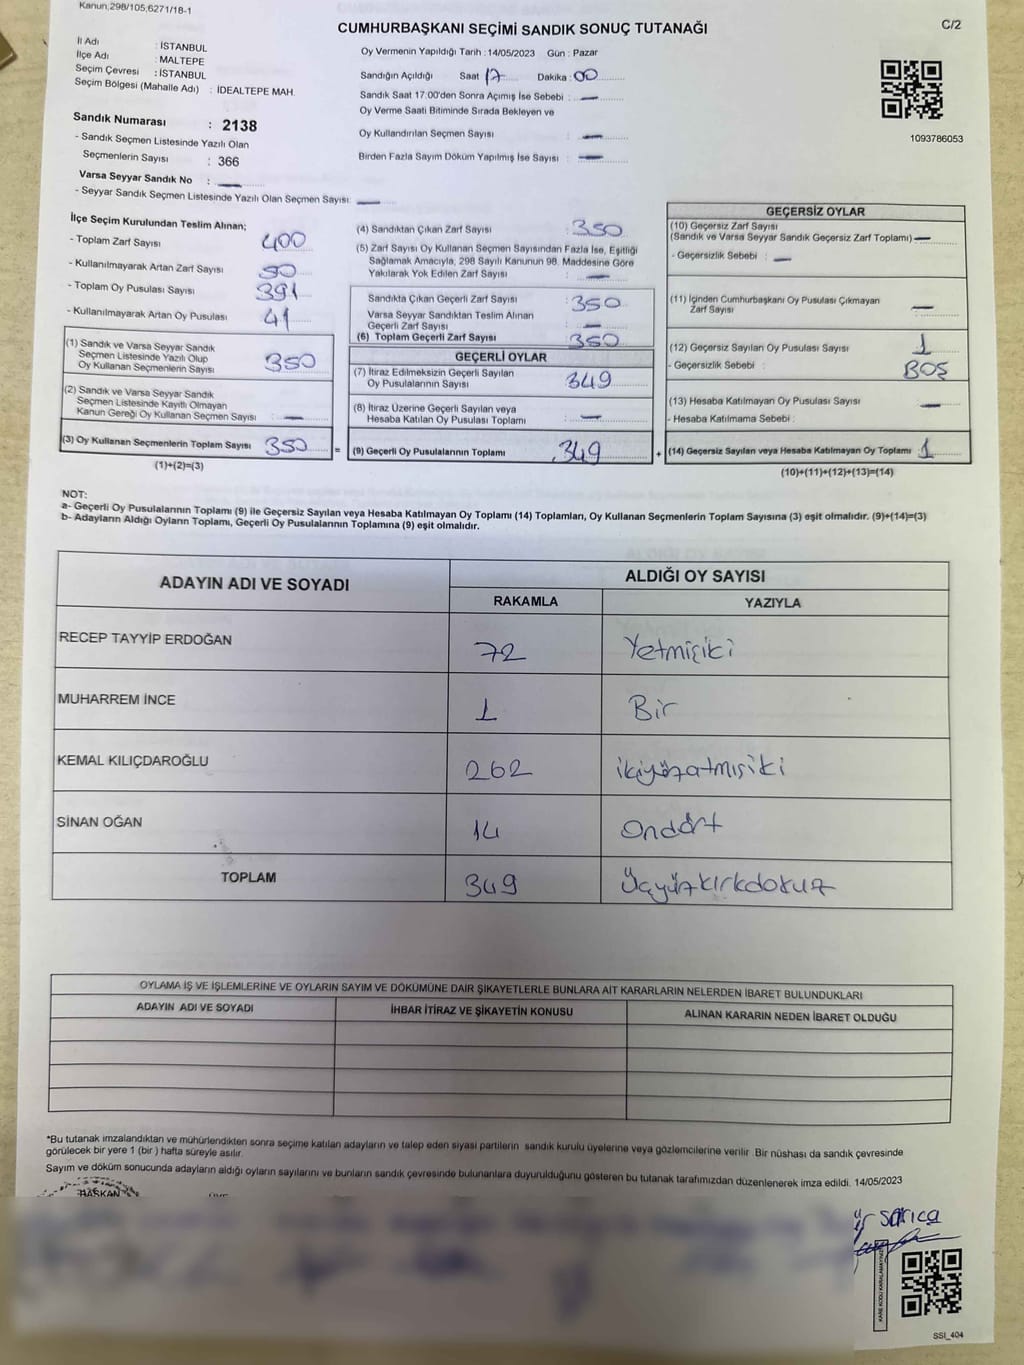 Kanun,298/105,6271/18-1
C/2
CUMHURBAŞKANI SEÇİMİ SANDIK SONUÇ TUTANAĞI
İl Adı : İSTANBUL
İlçe Adı : MALTEPE
Seçim Çevresi : İSTANBUL
Seçim Bölgesi (Mahalle Adı) : İDEALTEPE MAH.
Sandık Numarası : 2138
- Sandık Seçmen Listesinde Yazılı Olan
Seçmenlerin Sayısı : 366
Varsa Seyyar Sandık No : —
- Seyyar Sandık Seçmen Listesinde Yazılı Olan Seçmen Sayısı: —
Oy Vermenin Yapıldığı Tarih :14/05/2023 Gün : Pazar
Sandığın Açıldığı Saat 17 Dakika : 00
Sandık Saat 17:00'den Sonra Açımış İse Sebebi : —
Oy Verme Saati Bitiminde Sırada Bekleyen ve
Oy Kullandırılan Seçmen Sayısı : —
Birden Fazla Sayım Döküm Yapılmış İse Sayısı : —
1093786053
İlçe Seçim Kurulundan Teslim Alınan;
- Toplam Zarf Sayısı : 400
- Kullanılmayarak Artan Zarf Sayısı : 50
- Toplam Oy Pusulası Sayısı : 391
- Kullanılmayarak Artan Oy Pusulası : 41
(1) Sandık ve Varsa Seyyar Sandık
Seçmen Listesinde Yazılı Olup
Oy Kullanan Seçmenlerin Sayısı : 350
(2) Sandık ve Varsa Seyyar Sandık
Seçmen Listesinde Kayıtlı Olmayan
Kanun Gereği Oy Kullanan Seçmen Sayısı : —
(3) Oy Kullanan Seçmenlerin Toplam Sayısı : 350
(1)+(2)=(3)
(4) Sandıktan Çıkan Zarf Sayısı : 350
(5) Zarf Sayısı Oy Kullanan Seçmen Sayısından Fazla İse, Eşitliği
Sağlamak Amacıyla, 298 Sayılı Kanunun 98. Maddesine Göre
Yakılarak Yok Edilen Zarf Sayısı : —
Sandıkta Çıkan Geçerli Zarf Sayısı : 350
Varsa Seyyar Sandıktan Teslim Alınan
Geçerli Zarf Sayısı : —
(6) Toplam Geçerli Zarf Sayısı : 350
GEÇERLİ OYLAR
(7) İtiraz Edilmeksizin Geçerli Sayılan
Oy Pusulalarının Sayısı : 349
(8) İtiraz Üzerine Geçerli Sayılan veya
Hesaba Katılan Oy Pusulası Toplamı : —
= (9) Geçerli Oy Pusulalarının Toplamı : 349
GEÇERSİZ OYLAR
(10) Geçersiz Zarf Sayısı
(Sandık ve Varsa Seyyar Sandık Geçersiz Zarf Toplamı) —
- Geçersizlik Sebebi : —
(11) İçinden Cumhurbaşkanı Oy Pusulası Çıkmayan
Zarf Sayısı : —
(12) Geçersiz Sayılan Oy Pusulası Sayısı : 1
- Geçersizlik Sebebi : BOŞ
(13) Hesaba Katılmayan Oy Pusulası Sayısı : —
- Hesaba Katılmama Sebebi :
+ (14) Geçersiz Sayılan veya Hesaba Katılmayan Oy Toplamı : 1
(10)+(11)+(12)+(13)=(14)
NOT:
a- Geçerli Oy Pusulalarının Toplamı (9) ile Geçersiz Sayılan veya Hesaba Katılmayan Oy Toplamı (14) Toplamları, Oy Kullanan Seçmenlerin Toplam Sayısına (3) eşit olmalıdır. (9)+(14)=(3)
b- Adayların Aldığı Oyların Toplamı, Geçerli Oy Pusulalarının Toplamına (9) eşit olmalıdır.
ADAYIN ADI VE SOYADI ALDIĞI OY SAYISI
RAKAMLA YAZIYLA
RECEP TAYYİP ERDOĞAN 72 Yetmişiki
MUHARREM İNCE 1 Bir
KEMAL KILIÇDAROĞLU 262 ikiyüzatmışiki
SİNAN OĞAN 14 Ondört
TOPLAM 349 Üçyüzkırkdokuz
OYLAMA İŞ VE İŞLEMLERİNE VE OYLARIN SAYIM VE DÖKÜMÜNE DAİR ŞİKAYETLERLE BUNLARA AİT KARARLARIN NELERDEN İBARET BULUNDUKLARI
ADAYIN ADI VE SOYADI İHBAR İTİRAZ VE ŞİKAYETİN KONUSU ALINAN KARARIN NEDEN İBARET OLDUĞU
*Bu tutanak imzalandıktan ve mühürlendikten sonra seçime katılan adayların ve talep eden siyasi partilerin sandık kurulu üyelerine veya gözlemcilerine verilir. Bir nüshası da sandık çevresinde
görülecek bir yere 1 (bir ) hafta süreyle asılır.
Sayım ve döküm sonucunda adayların aldığı oyların sayılarını ve bunların sandık çevresinde bulunanlara duyurulduğunu gösteren bu tutanak tarafımızdan düzenlenerek imza edildi. 14/05/2023
BAŞKAN
sarıca
KARE KODU KARALAMAYINIZ
SSI_404